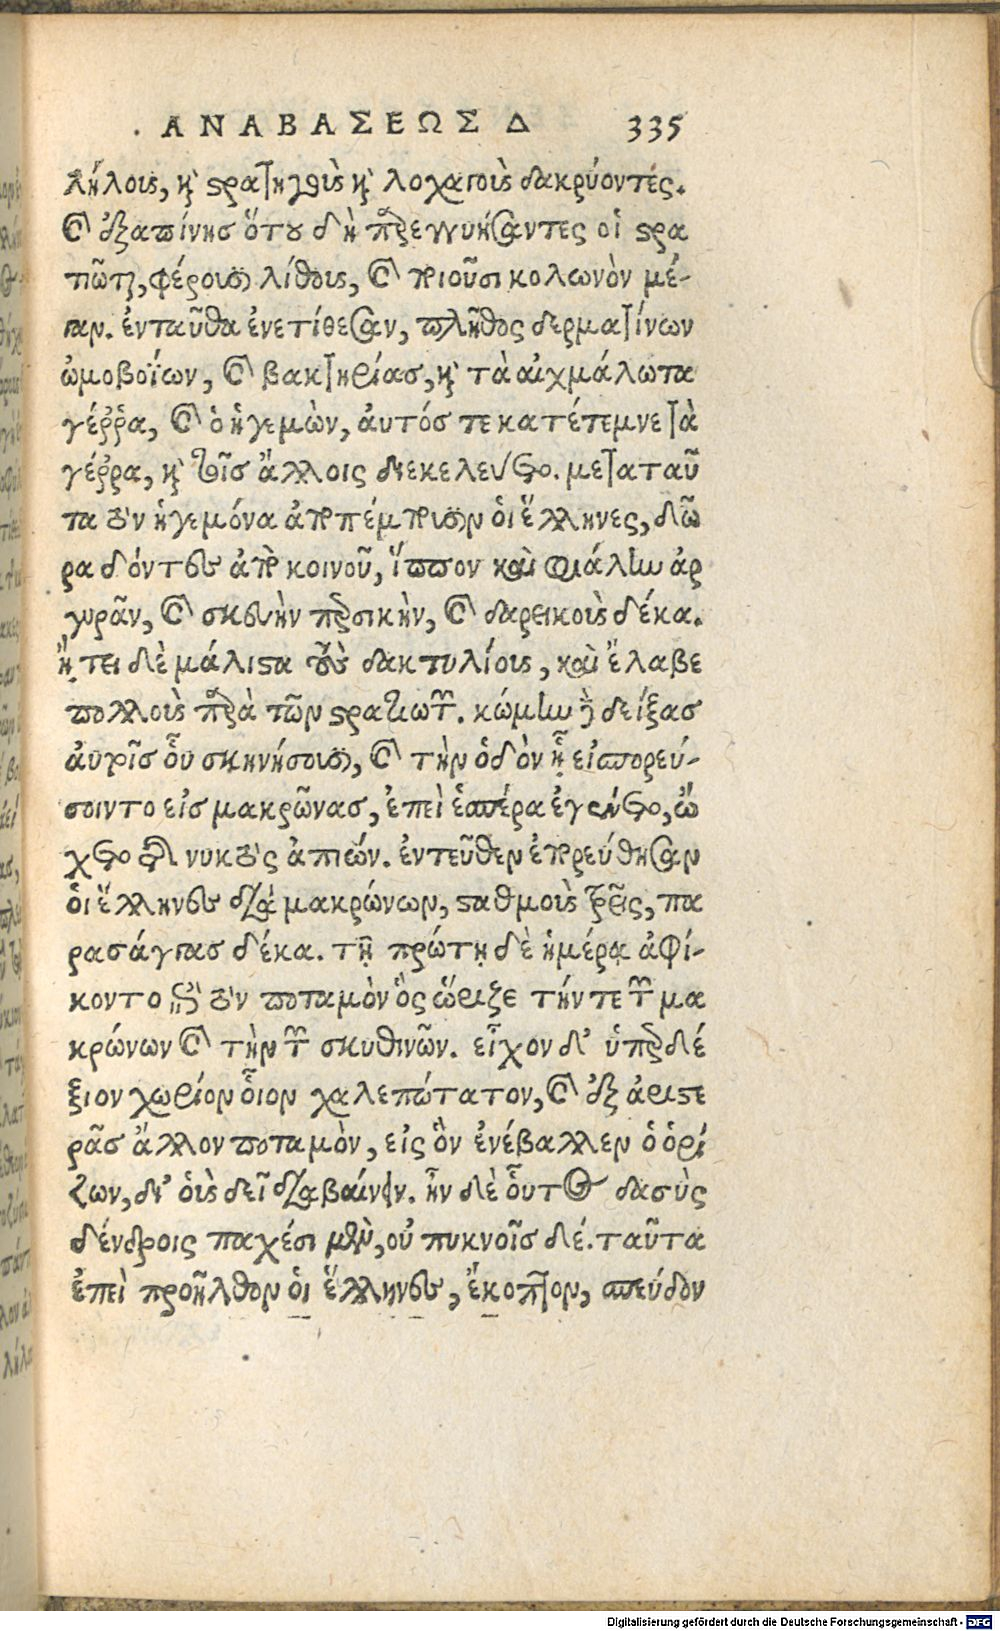 ΑΝΑΒΑΣΕΩΣ Δ 335
λήλοις, καὶ στρατηγοὺς καὶ λοχαγοὺς δακρύοντες.
καὶ ἐξαπίνησ ὅτου δὴ παρεγγυήσαντες οἱ στρα
τιῶται, φέρουσι λίθους, καὶ ποιοῦσι κολωνὸν μέ-
γαν. ἐνταῦθα ἐνετίθεσαν, πλῆθος δερματίνων
ὠμοβοΐων, καὶ βακτηρίας, καὶ τὰ αἰχμάλωτα
γέῤῥα, καὶ ὁ ἡγεμὼν, ἀυτός τε κατέτεμνε τὰ
γέῤῥα, καὶ τοῖς ἄλλοις διεκελεύετο. μετὰ ταῦ
τα τὸν ἡγεμόνα ἀποπέμπουσιν ὁι ἕλληνες, δῶ
ρα δόντες ἀπὸ κοινοῦ, ἵππον καὶ φιάλην ἀρ
γυρᾶν, καὶ σκευὴν περσικὴν, καὶ δαρεικοὺς δέκα.
ᾔτει δὲ μάλιστα τοὺς δακτυλίους, καὶ ἔλαβε
πολλοὺς παρὰ τῶν στρατιωτῶν. κώμην δὲ δείξας
ἀυτοῖς οὗ σκηνήσουσι, καὶ τὴν ὁδὸν ᾗ εἰσπορεύ-
σοιντο εἰς μακρῶνας, ἐπεὶ ἑσπέρα ἐγένετο, ᾤ
χετο τῆς νυκτὸς ἀπιών. ἐντεῦθεν ἐπορεύθησαν
ὁι ἕλληνες διὰ μακρώνων, σταθμοὺς τρεῖς, πα
ρασάγγας δέκα. τῇ πρώτῃ δὲ ἡμέρᾳ ἀφί-
κοντο ἐπὶ τὸν ποταμὸν ὃς ὥριζε τήν τε τῶν μα
κρώνων καὶ τὴν τῶν σκυθινῶν. εἶχον δ' ὑπερδέ
ξιον χωρίον οἷον χαλεπώτατον, καὶ ἐξ ἀριστε
ρᾶς ἄλλον ποταμὸν, εἰς ὃν ἐνέβαλλεν ὁ ὁρί
ζων, δι' ὁὺς δεῖ διαβαίνειν. ἦν δὲ οὗτος δασὺς
δένδροις παχέσι μὲν, οὐ πυκνοῖς δέ. ταῦτα
ἐπεὶ προῆλθον ὁι ἕλληνες, ἔκοπτον, σπεύδον
Digitalisierung gefördert durch die Deutsche Forschungsgemeinschaft - DFG